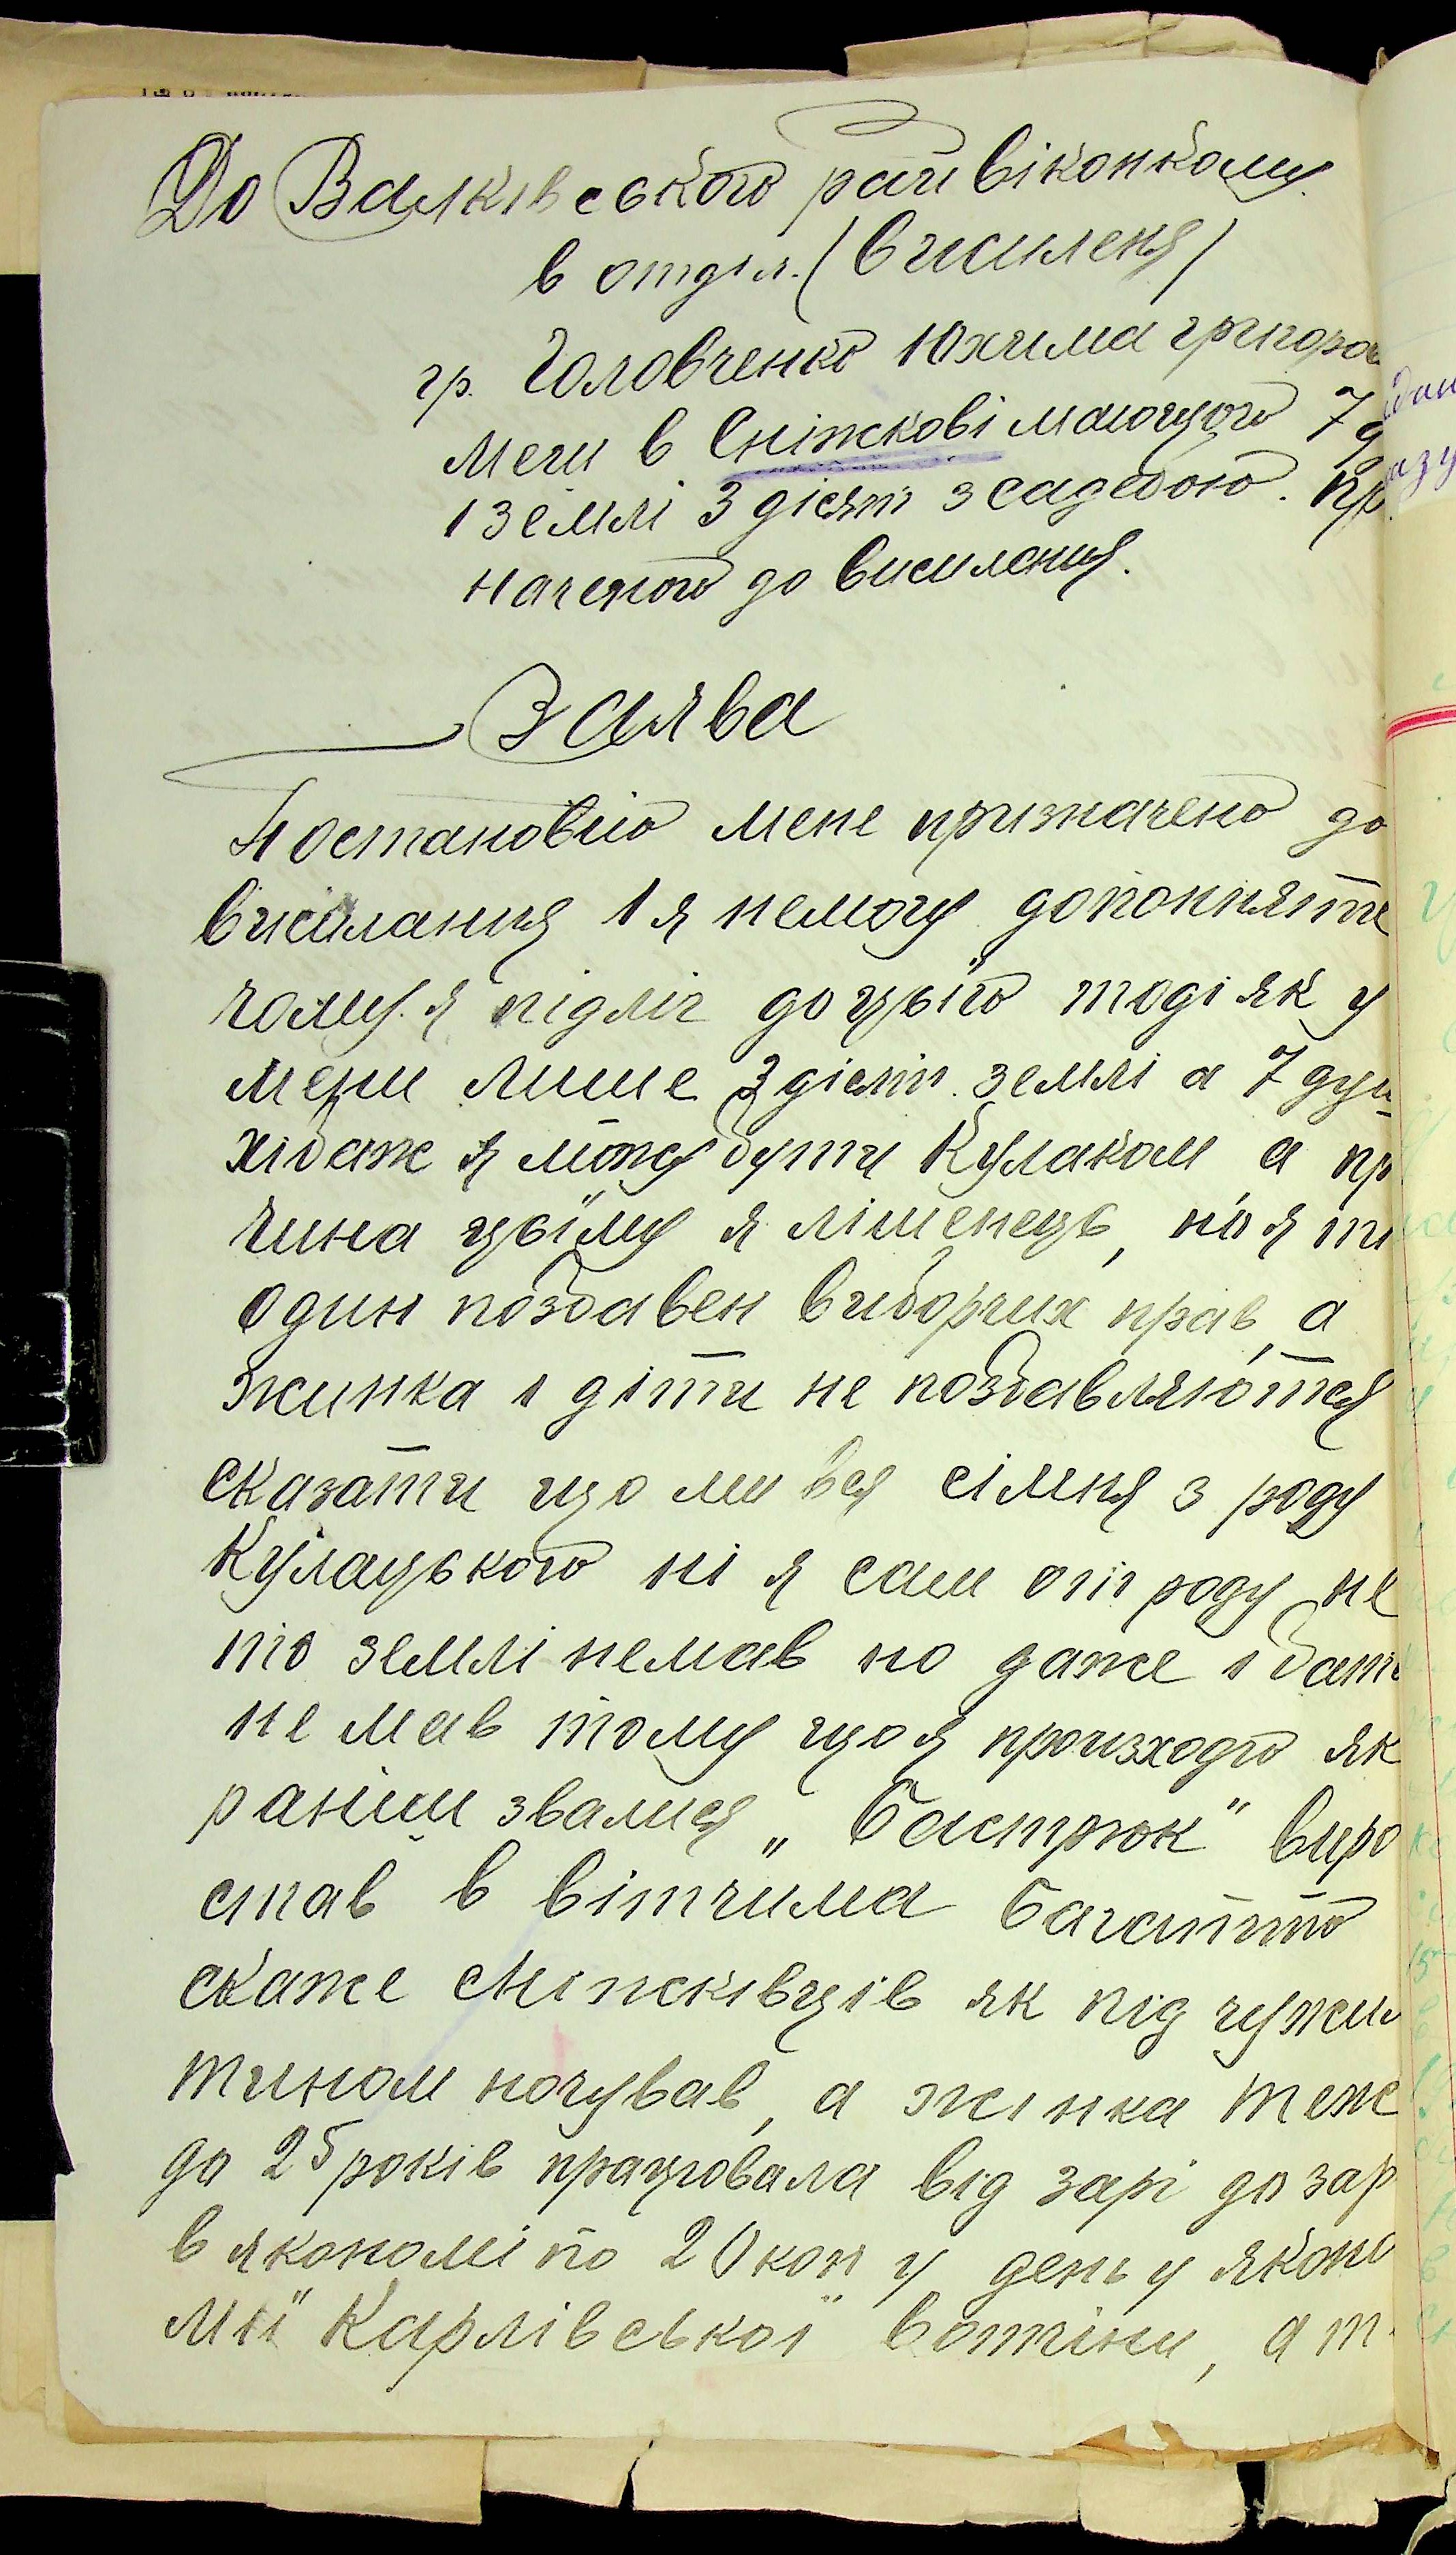 До Валківського райвіконкому
в отділ. (вчисиленя)
гр. Головченко Юхима григоров
Меги в Сніжкові маючого 7 д
і землі 3 дісят з садебою. пр
наченого до висиления.
Заява
Постановію мене призначено до
висиланця і я немогу допоняти
чому я підліг доцьго тоді як у
мени лише 3 дісят. землі а 7 душ
хібаж я можу бути Кулаком а пр
чина цьїму я лішенець, но я ти
один поздавен виборчих прав, а
жинка і діти не поздавляються
сказати що ми вся сімня з роду
Кулацького ні я сам отроду не
то землі немав но даже і бать
не мав тому що я происходю як
раніш звалися „Бастрюк" виро
став в вітчима Багатто
скаже сніжківців як під чужим
тином ночував, а жінка теж
до 25 років працювала від зарі до зар
в якономі по 20 коп у день у яконо
мії Карлівської вотчіни, а т